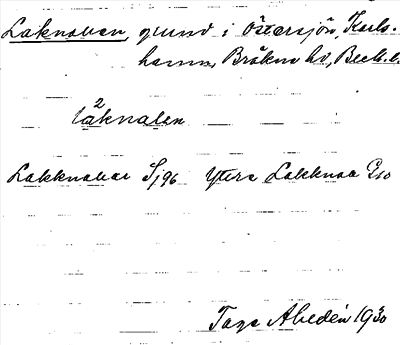 Laknallen, grund i Östersjön, Karls-
hamn, Bräkne hd, Blek. l.
2
làknalen
Lakknallar Sj 96 Yttre Lakknall E10
Tage Ahldén 1930